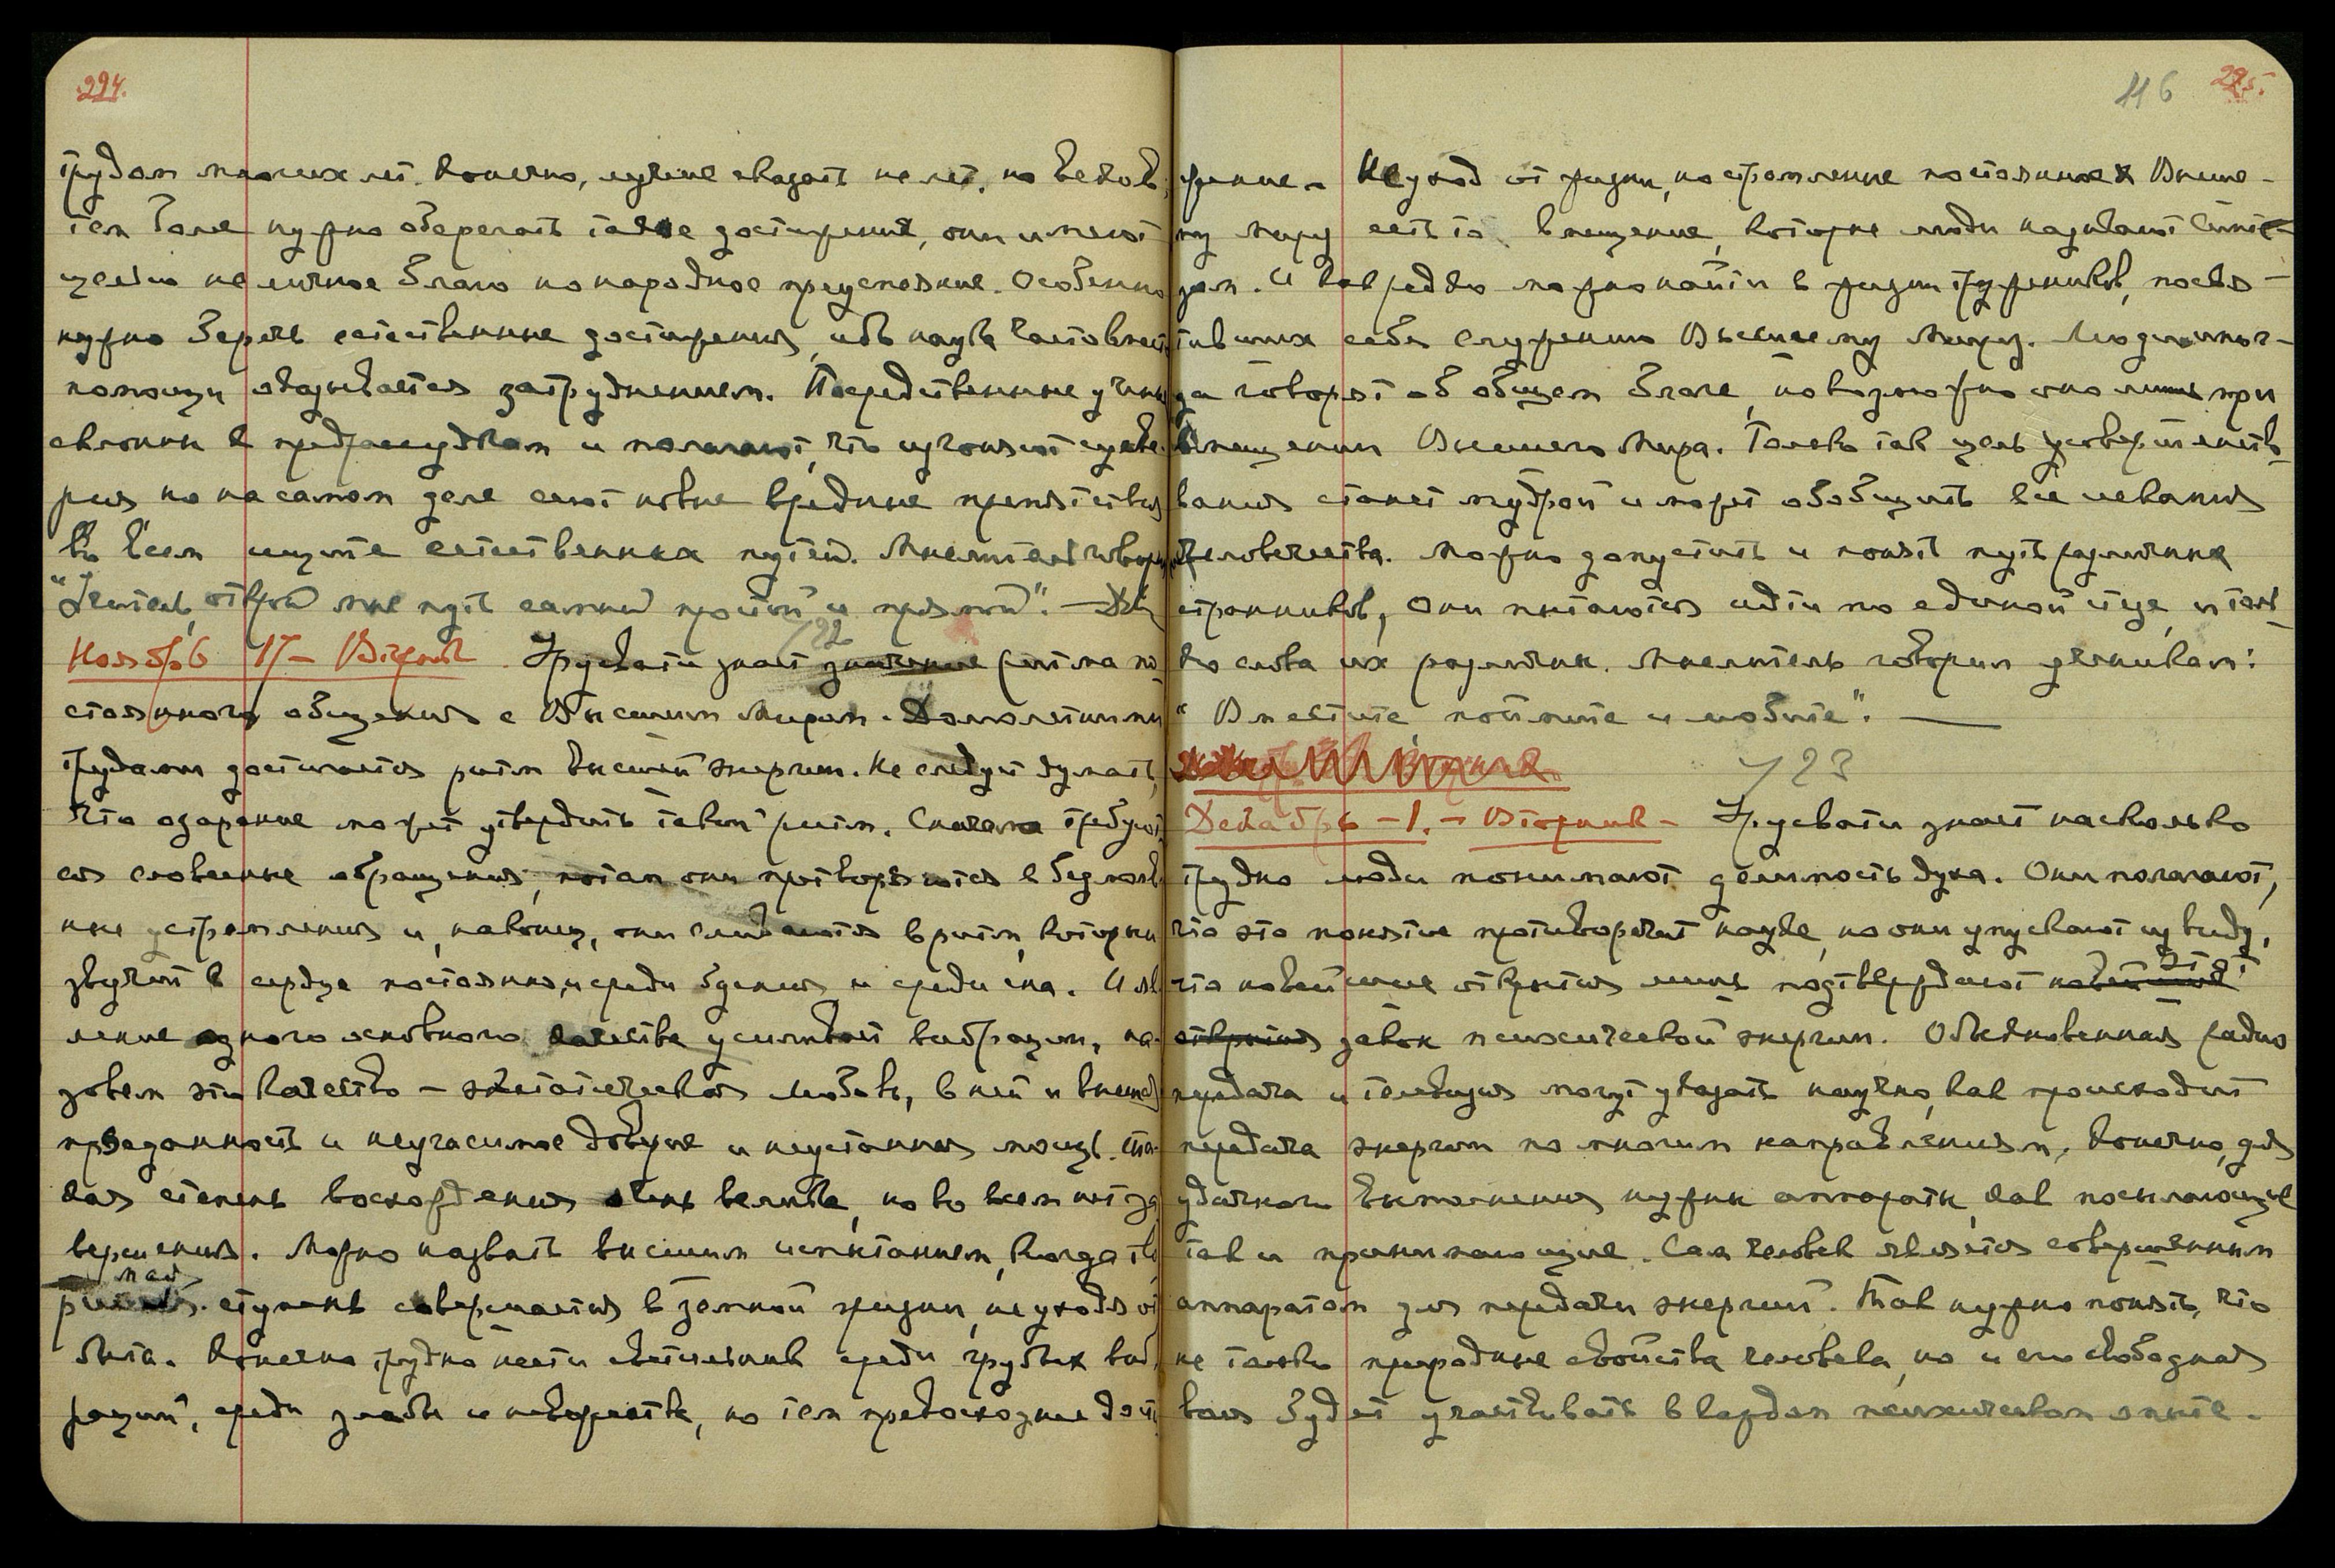 294.
трудам многих лет. Конечно, лучше сказать не лет, но веков,
тем более нужно оберегать такие достижения, они имеют
целью не личное благо но народное преуспеяние. Особенно
нужно беречь естественные достижения, ибо наука часто вместо
помощи оказывается затруднением. Посредственные ученые
склонны к предрассудкам и полагают, что изгоняют суеве-
рия, но на самом деле сеют новые вредные препятствия
Во всем ищите естественных путей. Мыслитель говорил
"Учитель, открой мне путь самый простой и прямой". —
722
Ноябрь 17 – Вторник. Урусвати знает значение ритма по-
стоянного общения с Высшим Миром. Долголетними
трудами достигается ритм высшей энергии. Не следует думать,
что озарение может утвердить такой ритм. Сначала требуют-
ся словесные обращения, потом они претворяются в безмолв-
ные устремления и, наконец, они сливаются в ритм, который
звучит в сердце постоянно, и среди бдения и среди сна. И яв-
ление одного основного качества усиливает вибрации, на-
зовем это качество – экстатическая Любовь, в ней и вмещ
преданность и неугасимое доверие и неустанная мощь. Та-
кая степень восхождения очень велика, но во всем нет за-
вершения. Можно назвать высшим испытанием, когда
ступень совершается в земной жизни, не уходя от
быта. Конечно трудно нести светильник среди грубых виб-
раций, среди злобы и невежества, но тем превосходнее дости-
116 295.
жение. – Не уход от жизни, но стремление постоянное к Высше-
му Миру есть то вмещение, которое люди называют Синте-
зом. И как редко можно найти в жизни труженников, посвя-
тивших себя служению Высшему Миру. Люди иног-
да говорят об общем благе, но возможно оно лишь при
вмещении Высшего Мира. Только так цель усовершенство-
вания станет мудрой и может обобщить все искания
человечества. Можно допустить и понять путь различных
странников, они пытаются идти по единой стезе, и толь-
ко слова их различны. Мыслитель говорил ученикам:
"Вместите, поймите и любите". —
723
Декабрь – 1. – Вторник – Урусвати знает насколько
трудно люди понимают делимость духа. Они полагают,
что это понятие противоречит науке, но они упускают из виду,
что новейшие открытия лишь подтверждают новейшие этот
открытия закон психической энергии. Обыкновенная радио
передача и телевизия могут указать научно, как происходит
передача энергии по многим направлениям. Конечно, для
удачного выполнения нужны аппараты, как посылающие
так и принимающие. Сам человек является совершенным
аппаратом для передачи энергий. Так нужно понять, что
не только природные свойства человека, но и его свободная
воля будет участвовать в каждом психическом опыте.